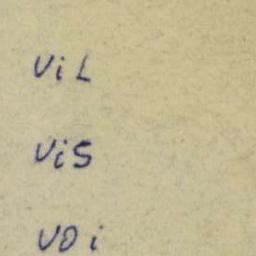 ViL
ViS
VOi